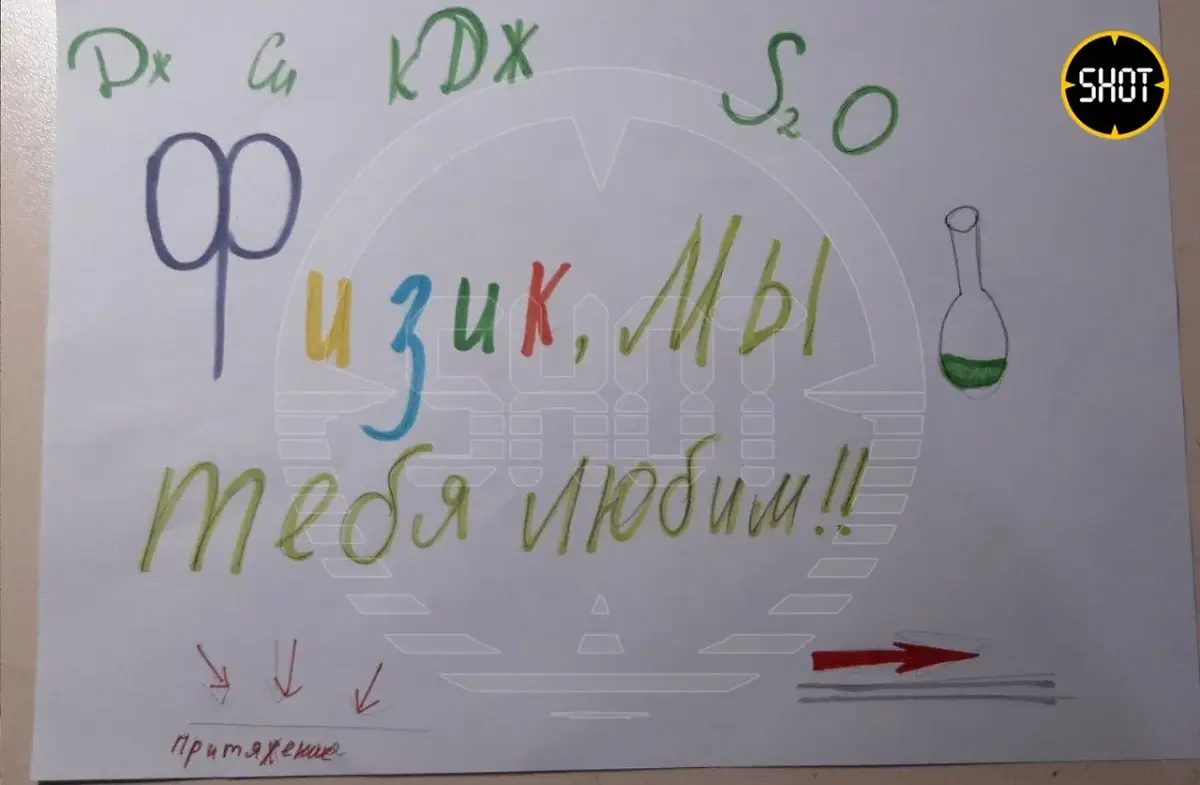 Дж Си кДЖ S₂O
SHOT
Физик, мы
тебя любим!!
Притяжение